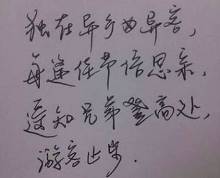 独在异乡为异客，
每逢佳节倍思亲，
遥知兄弟登高处，
游客止步。